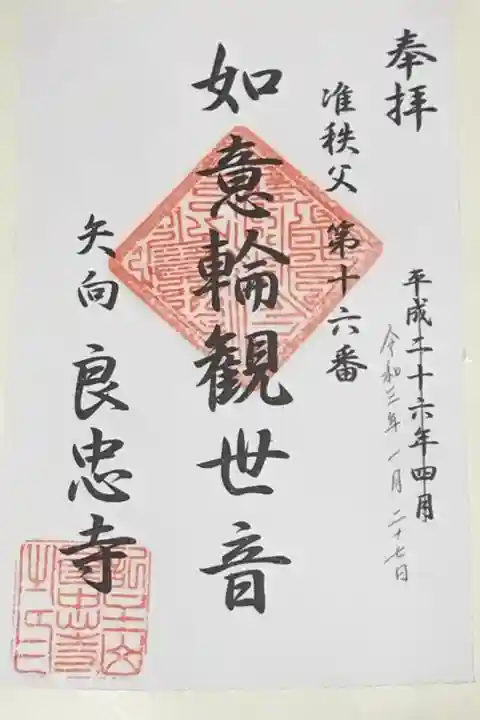 奉拝
准秩父 第十六番
平成二十六年四月
令和三年一月二十七日
如意輪観世音
矢向 良忠寺